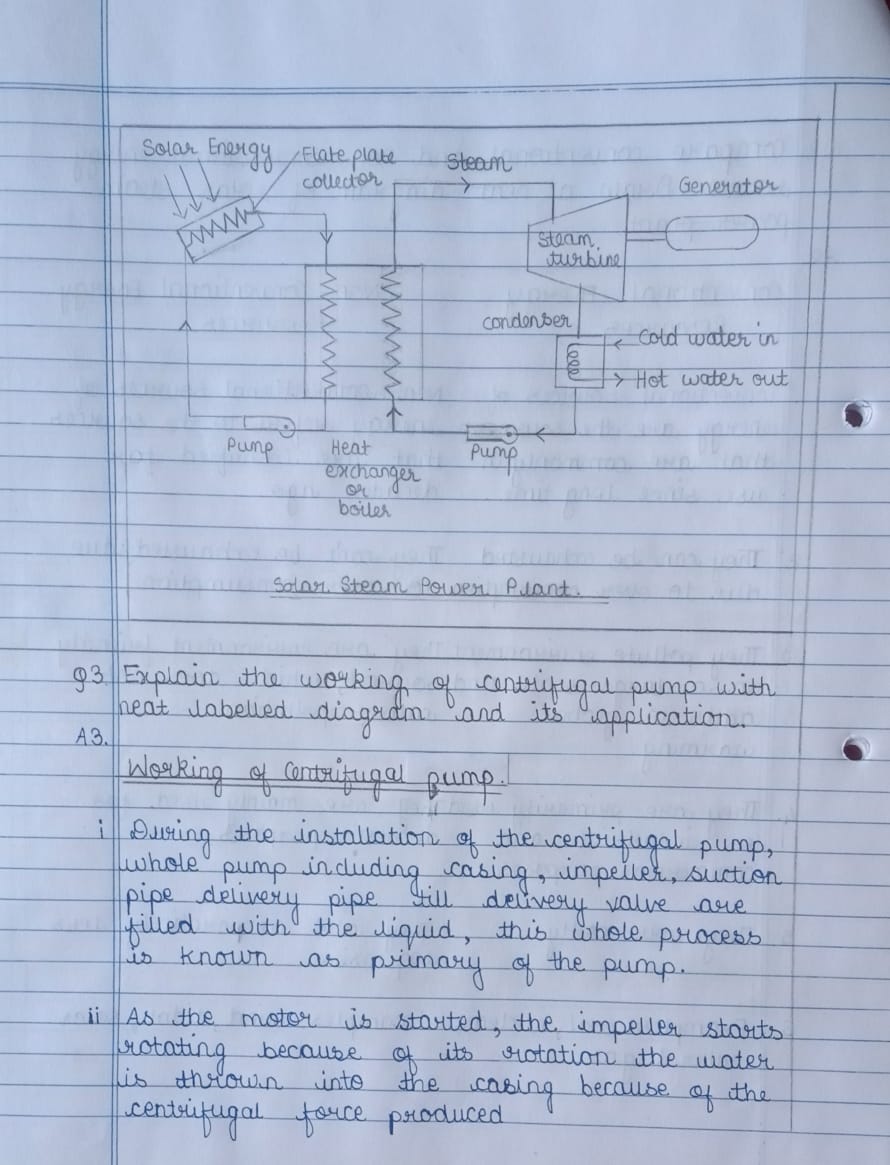 Solar Energy
Flate plate
collector
Steam
Generator
Steam
turbine
condenser
Cold water in
Hot water out
Pump
Heat
exchanger
or
boiler
Pump
Solar Steam Power Plant.
Q3 Explain the working of centrifugal pump with
neat labelled diagram and its application.
A3.
Working of Centrifugal pump.
i During the installation of the centrifugal pump,
whole pump including casing, impeller, suction
pipe delivery pipe till delivery valve are
filled with the liquid, this whole process
is known as primary of the pump.
ii As the motor is started, the impeller starts
rotating because of its rotation the water
is thrown into the casing because of the
centrifugal force produced